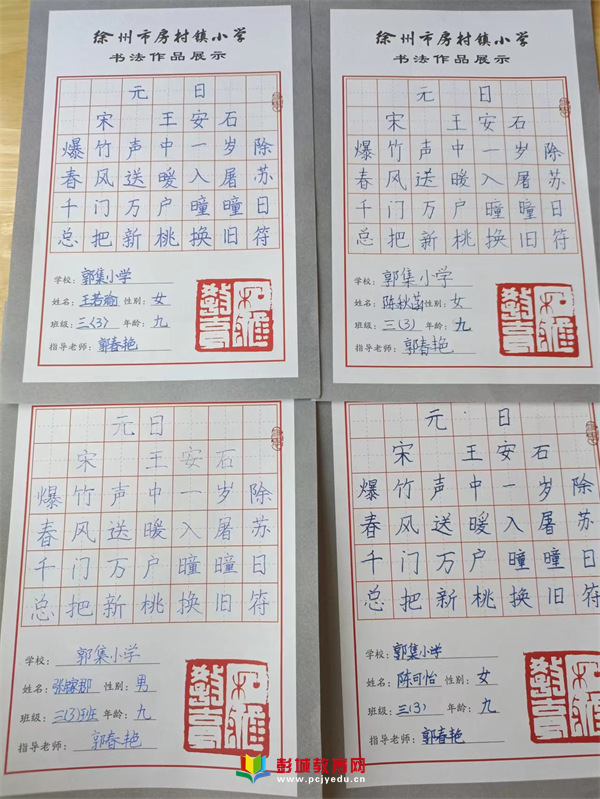 徐州市房村镇小学
书法作品展示
元日
宋 王安石
爆竹声中一岁除
春风送暖入屠苏
千门万户曈曈日
总把新桃换旧符
学校：郭集小学
姓名：王若瑜 性别：女
班级：三(3) 年龄：九
指导老师：郭春艳
徐州市房村镇小学
书法作品展示
元日
宋 王安石
爆竹声中一岁除
春风送暖入屠苏
千门万户曈曈日
总把新桃换旧符
学校：郭集小学
姓名：陈秋 性别：女
班级：三(3) 年龄：九
指导老师：郭春艳
元日
宋 王安石
爆竹声中一岁除
春风送暖入屠苏
千门万户曈曈日
总把新桃换旧符
学校：郭集小学
姓名：张 性别：男
班级：三(3)班 年龄：九
指导老师：郭春艳
元日
宋 王安石
爆竹声中一岁除
春风送暖入屠苏
千门万户曈曈日
总把新桃换旧符
学校：郭集小学
姓名：陈可怡 性别：女
班级：三(3) 年龄：九
指导老师：郭春艳
彭城教育网
www.pcjyedu.cn